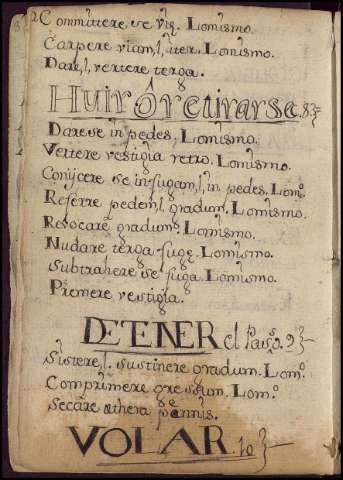 Committere se viæ. Lomismo.
Carpere viam, l, iter. Lomismo.
Dare, l, vertere terga.
Huir ò retirarse. 8.}
Darese in pedes. Lomismo.
Vertere vestigia retro. Lomismo.
Conijcere se in fugam, l, in pedes. Lom.º
Referre pedem, l, gradum. Lomismo.
Revocare gradum. Lomismo.
Nudare terga fugę. Lomismo.
Subtrahere se fuga. Lomismo.
Premere vestigia.
DETENER el Passo. 9}
Sistere, l. sustinere gradum. Lom.º
Comprimere gressum. Lom.º
Secare æthera pennis.
VOLAR. 10}